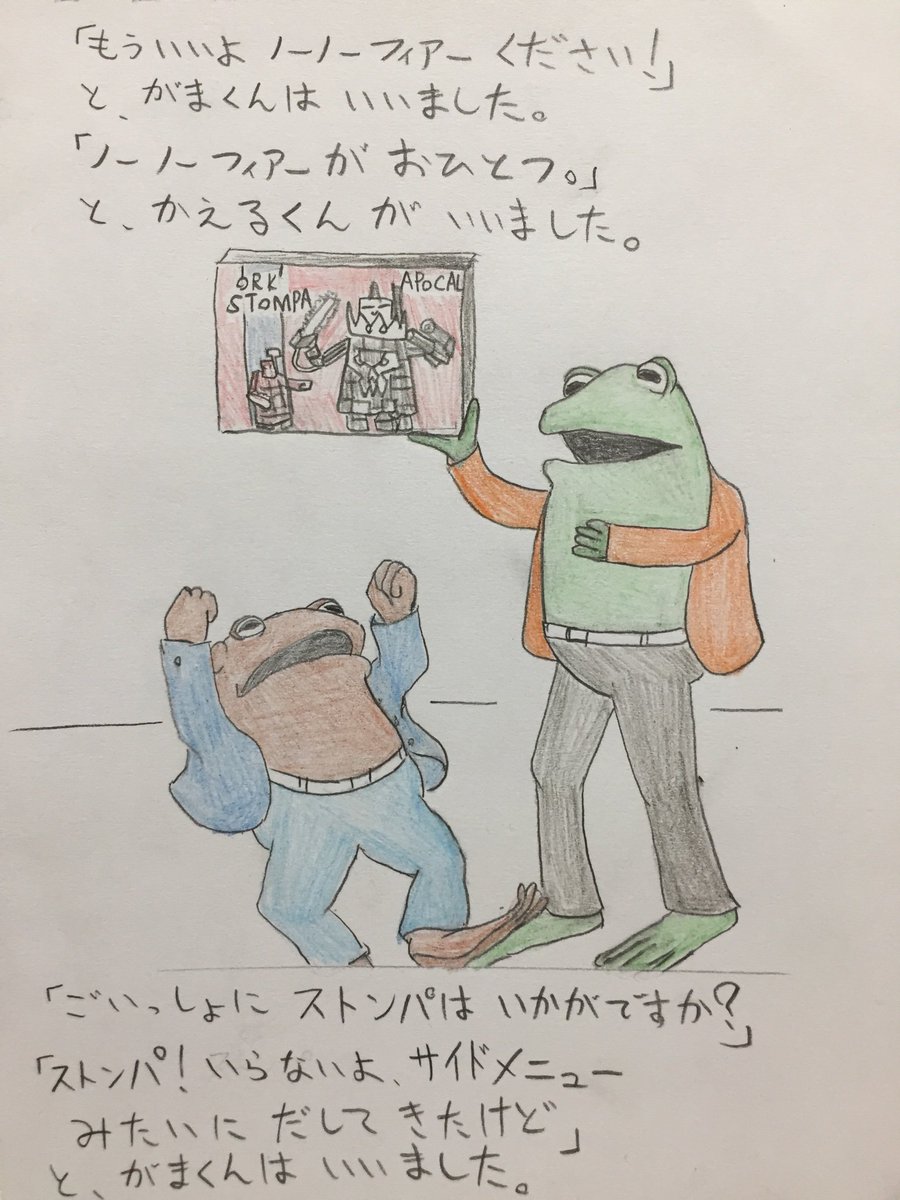 「もういいよ ノーノーフィアー ください!」
と、がまくんは いいました。
「ノーノーフィアーが おひとつ。」
と、かえるくん が いいました。
'ORK'
STOMPA
APOCAL
「ごいっしょに ストンパは いかがですか?」
「ストンパ! いらないよ、サイドメニュー
みたいに だして きたけど」
と、がまくんは いいました。